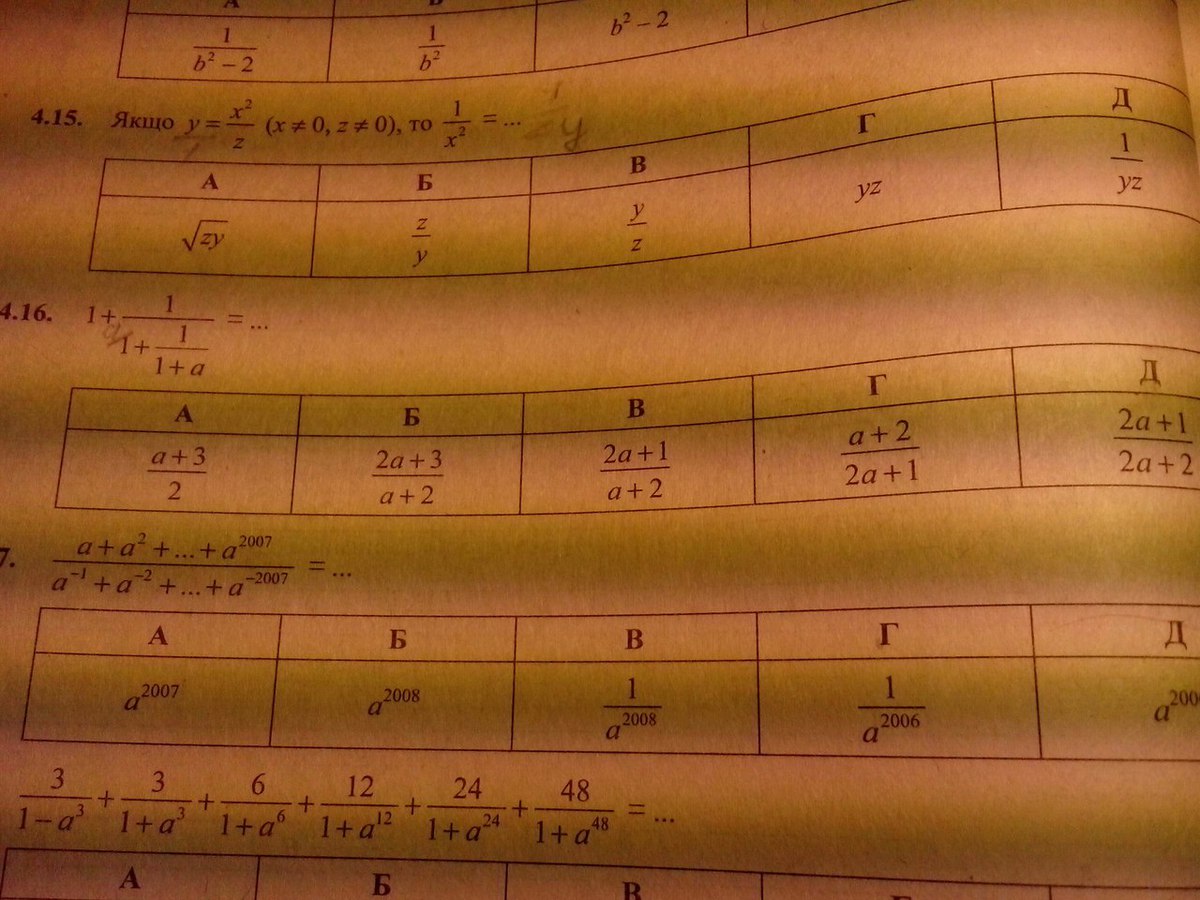 А В
1/(b² − 2) 1/b² b² − 2
4.15. Якщо y = x²/z (x ≠ 0, z ≠ 0), то 1/x² = ...
А Б В Г Д
√zy z/y y/z yz 1/yz
4.16. 1 + 1/(1 + 1/(1 + a)) = ...
А Б В Г Д
(a + 3)/2 (2a + 3)/(a + 2) (2a + 1)/(a + 2) (a + 2)/(2a + 1) (2a + 1)/(2a + 2)
7. (a + a² + ... + a²⁰⁰⁷)/(a⁻¹ + a⁻² + ... + a⁻²⁰⁰⁷) = ...
А Б В Г Д
a²⁰⁰⁷ a²⁰⁰⁸ 1/a²⁰⁰⁸ 1/a²⁰⁰⁶
3/(1 − a³) + 3/(1 + a³) + 6/(1 + a⁶) + 12/(1 + a¹²) + 24/(1 + a²⁴) + 48/(1 + a⁴⁸) = ...
А Б В